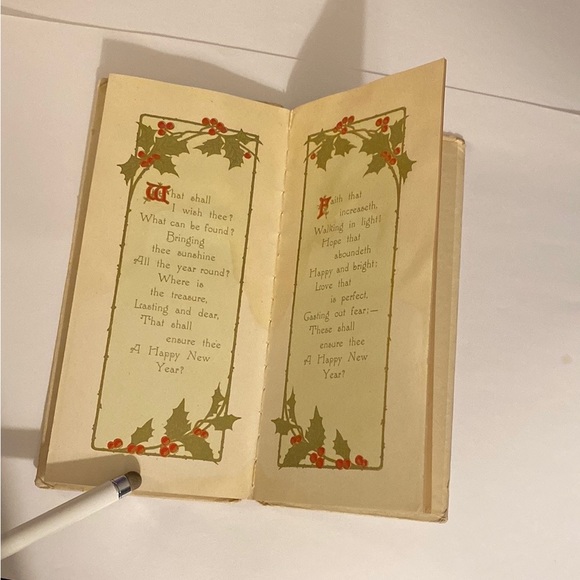 What shall
I wish thee?
What can be found?
Bringing
thee sunshine
All the year round?
Where is
the treasure,
Lasting and dear,
That shall
ensure thee
A Happy New
Year?
Faith that
increaseth,
Walking in light;
Hope that
aboundeth
Happy and bright;
Love that
is perfect,
Casting out fear:—
These shall
ensure thee
A Happy New
Year?